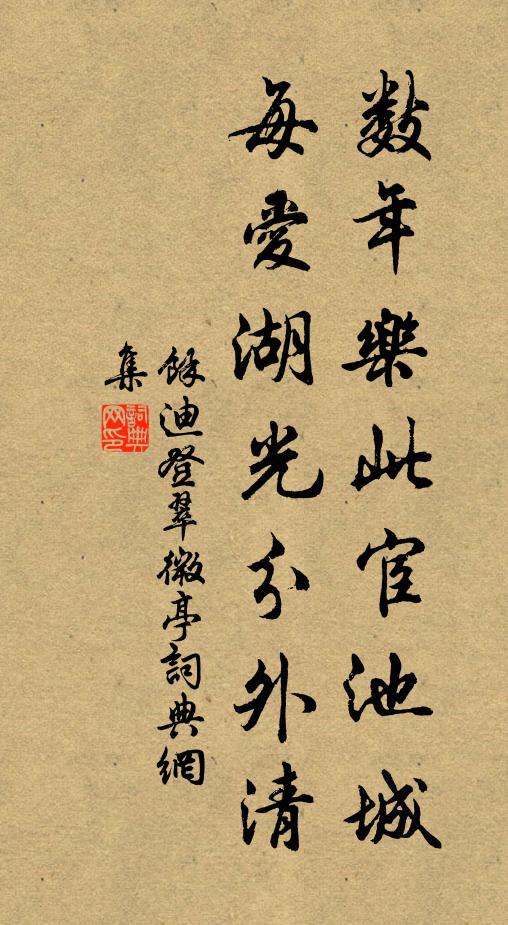 數年樂此宦池城
每愛湖光分外清
餘迪登翠微亭詞典網
集
詞典
网印